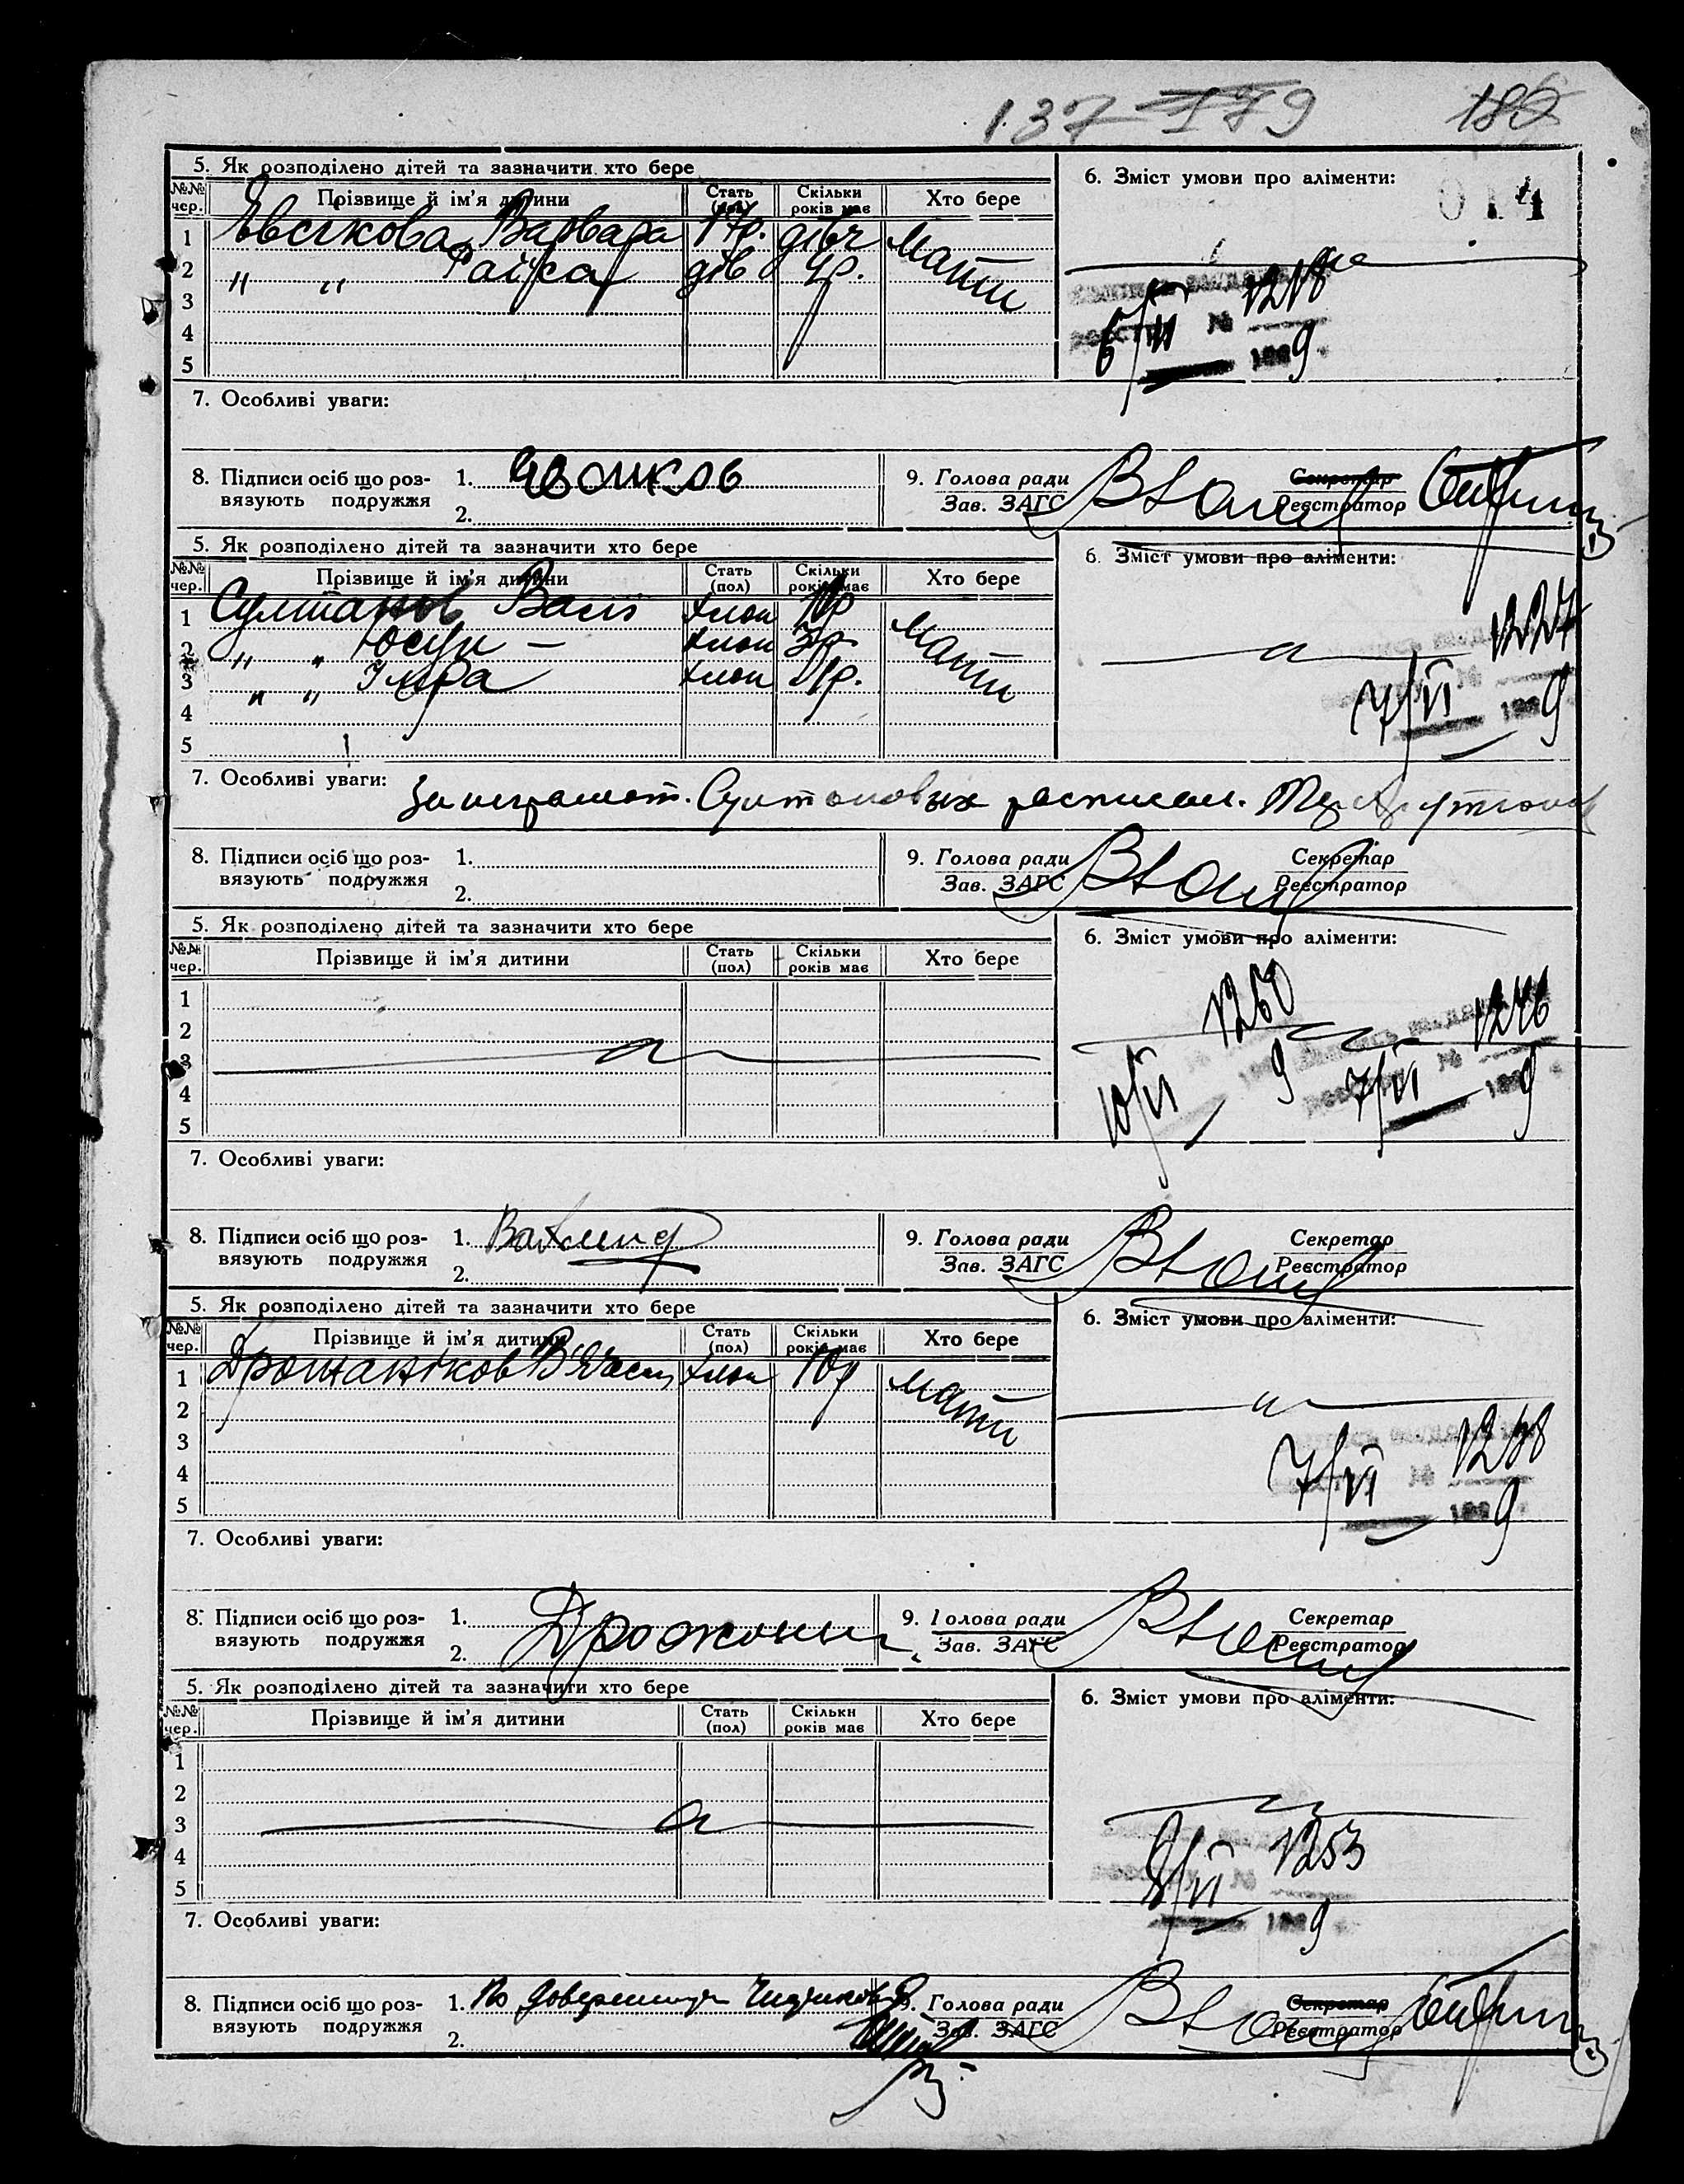 137 179 182
5. Як розподілено дітей та зазначити хто бере
6. Зміст умови про аліменти:
014
№№ чер. Прізвище й ім'я дитини Стать (пол) Скільки років має Хто бере
1 Явсікова Варвара 17р. дівч мати
2 " " Раїса дів 4р.
3
4
5
6/VI № 1218
192 9
7. Особливі уваги:
8. Підписи осіб що роз-
вязують подружжя
1.
2.
9. Голова ради
Зав. ЗАГС
Секретар
Реєстратор
5. Як розподілено дітей та зазначити хто бере
6. Зміст умови про аліменти:
№№ чер. Прізвище й ім'я дитини Стать (пол) Скільки років має Хто бере
1 Султанов Валі хлоп мати
2 " " Юсуп - хлоп 3р
3 " " хлоп 1р.
4
5
7/VI № 1227
192 9
7. Особливі уваги: За неграмот. Султановых расписал.
8. Підписи осіб що роз-
вязують подружжя
1.
2.
9. Голова ради
Зав. ЗАГС
Секретар
Реєстратор
5. Як розподілено дітей та зазначити хто бере
6. Зміст умови про аліменти:
№№ чер. Прізвище й ім'я дитини Стать (пол) Скільки років має Хто бере
1
2
3
4
5
1260 1246
10/VI 9 7/VI № 192 9
7. Особливі уваги:
8. Підписи осіб що роз-
вязують подружжя
1.
2.
9. Голова ради
Зав. ЗАГС
Секретар
Реєстратор
5. Як розподілено дітей та зазначити хто бере
6. Зміст умови про аліменти:
№№ чер. Прізвище й ім'я дитини Стать (пол) Скільки років має Хто бере
1 хлоп 10р мати
2
3
4
5
7/VI № 1238
192 9
7. Особливі уваги:
8. Підписи осіб що роз-
вязують подружжя
1.
2.
9. Голова ради
Зав. ЗАГС
Секретар
Реєстратор
5. Як розподілено дітей та зазначити хто бере
6. Зміст умови про аліменти:
№№ чер. Прізвище й ім'я дитини Стать (пол) Скільки років має Хто бере
1
2
3
4
5
8/VI № 1253
192 9
7. Особливі уваги:
8. Підписи осіб що роз-
вязують подружжя
1. По
2.
9. Голова ради
Зав. ЗАГС
Секретар
Реєстратор